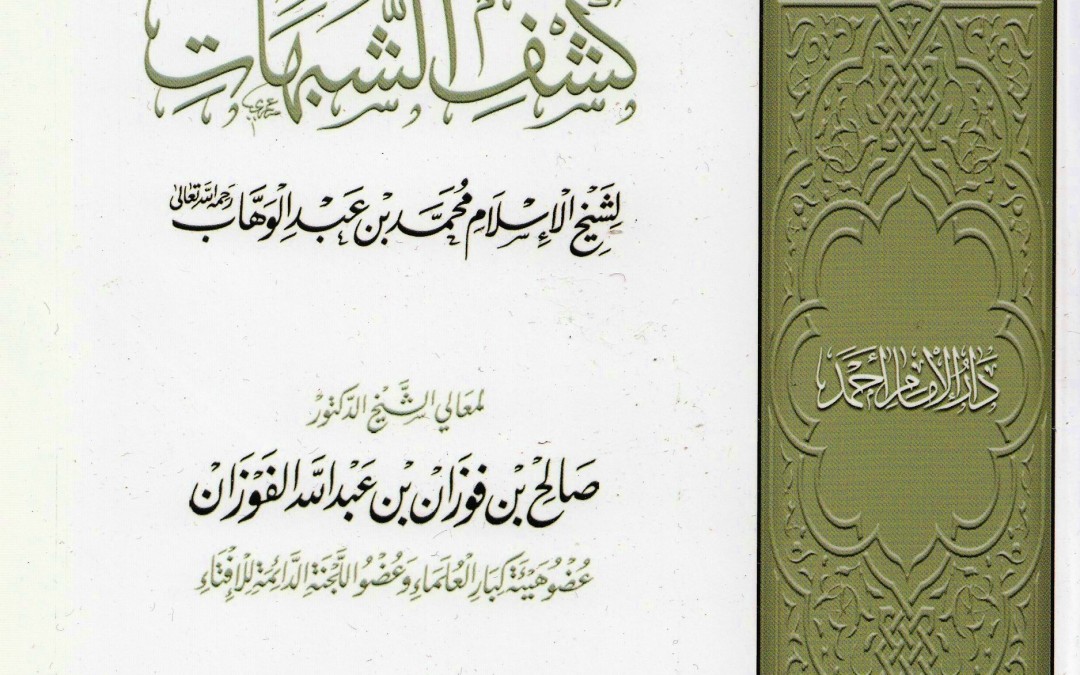 كَشْفِ الشُّبُهَاتِ
لِشَيْخِ الْإِسْلَامِ مُحَمَّد بْن عَبْدِ الْوَهَّابِ رَحِمَهُ اللهُ تَعَالَى
لمعَالي الشَّيْخ الدَّكتُورْ
صَالِح بْن فَوْزَان بْن عَبْدِ اللهِ الفَوْزَان
عُضْو هَيْئَة كِبَارِ الْعُلَمَاءِ وَعُضْو اللَّجْنَةِ الدَّائِمَةِ لِلْإِفْتَاءِ
دَارُ الْإِمَامِ أَحْمَدَ